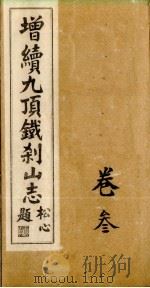 增續九頂鐵刹山志
松心
題
卷叁